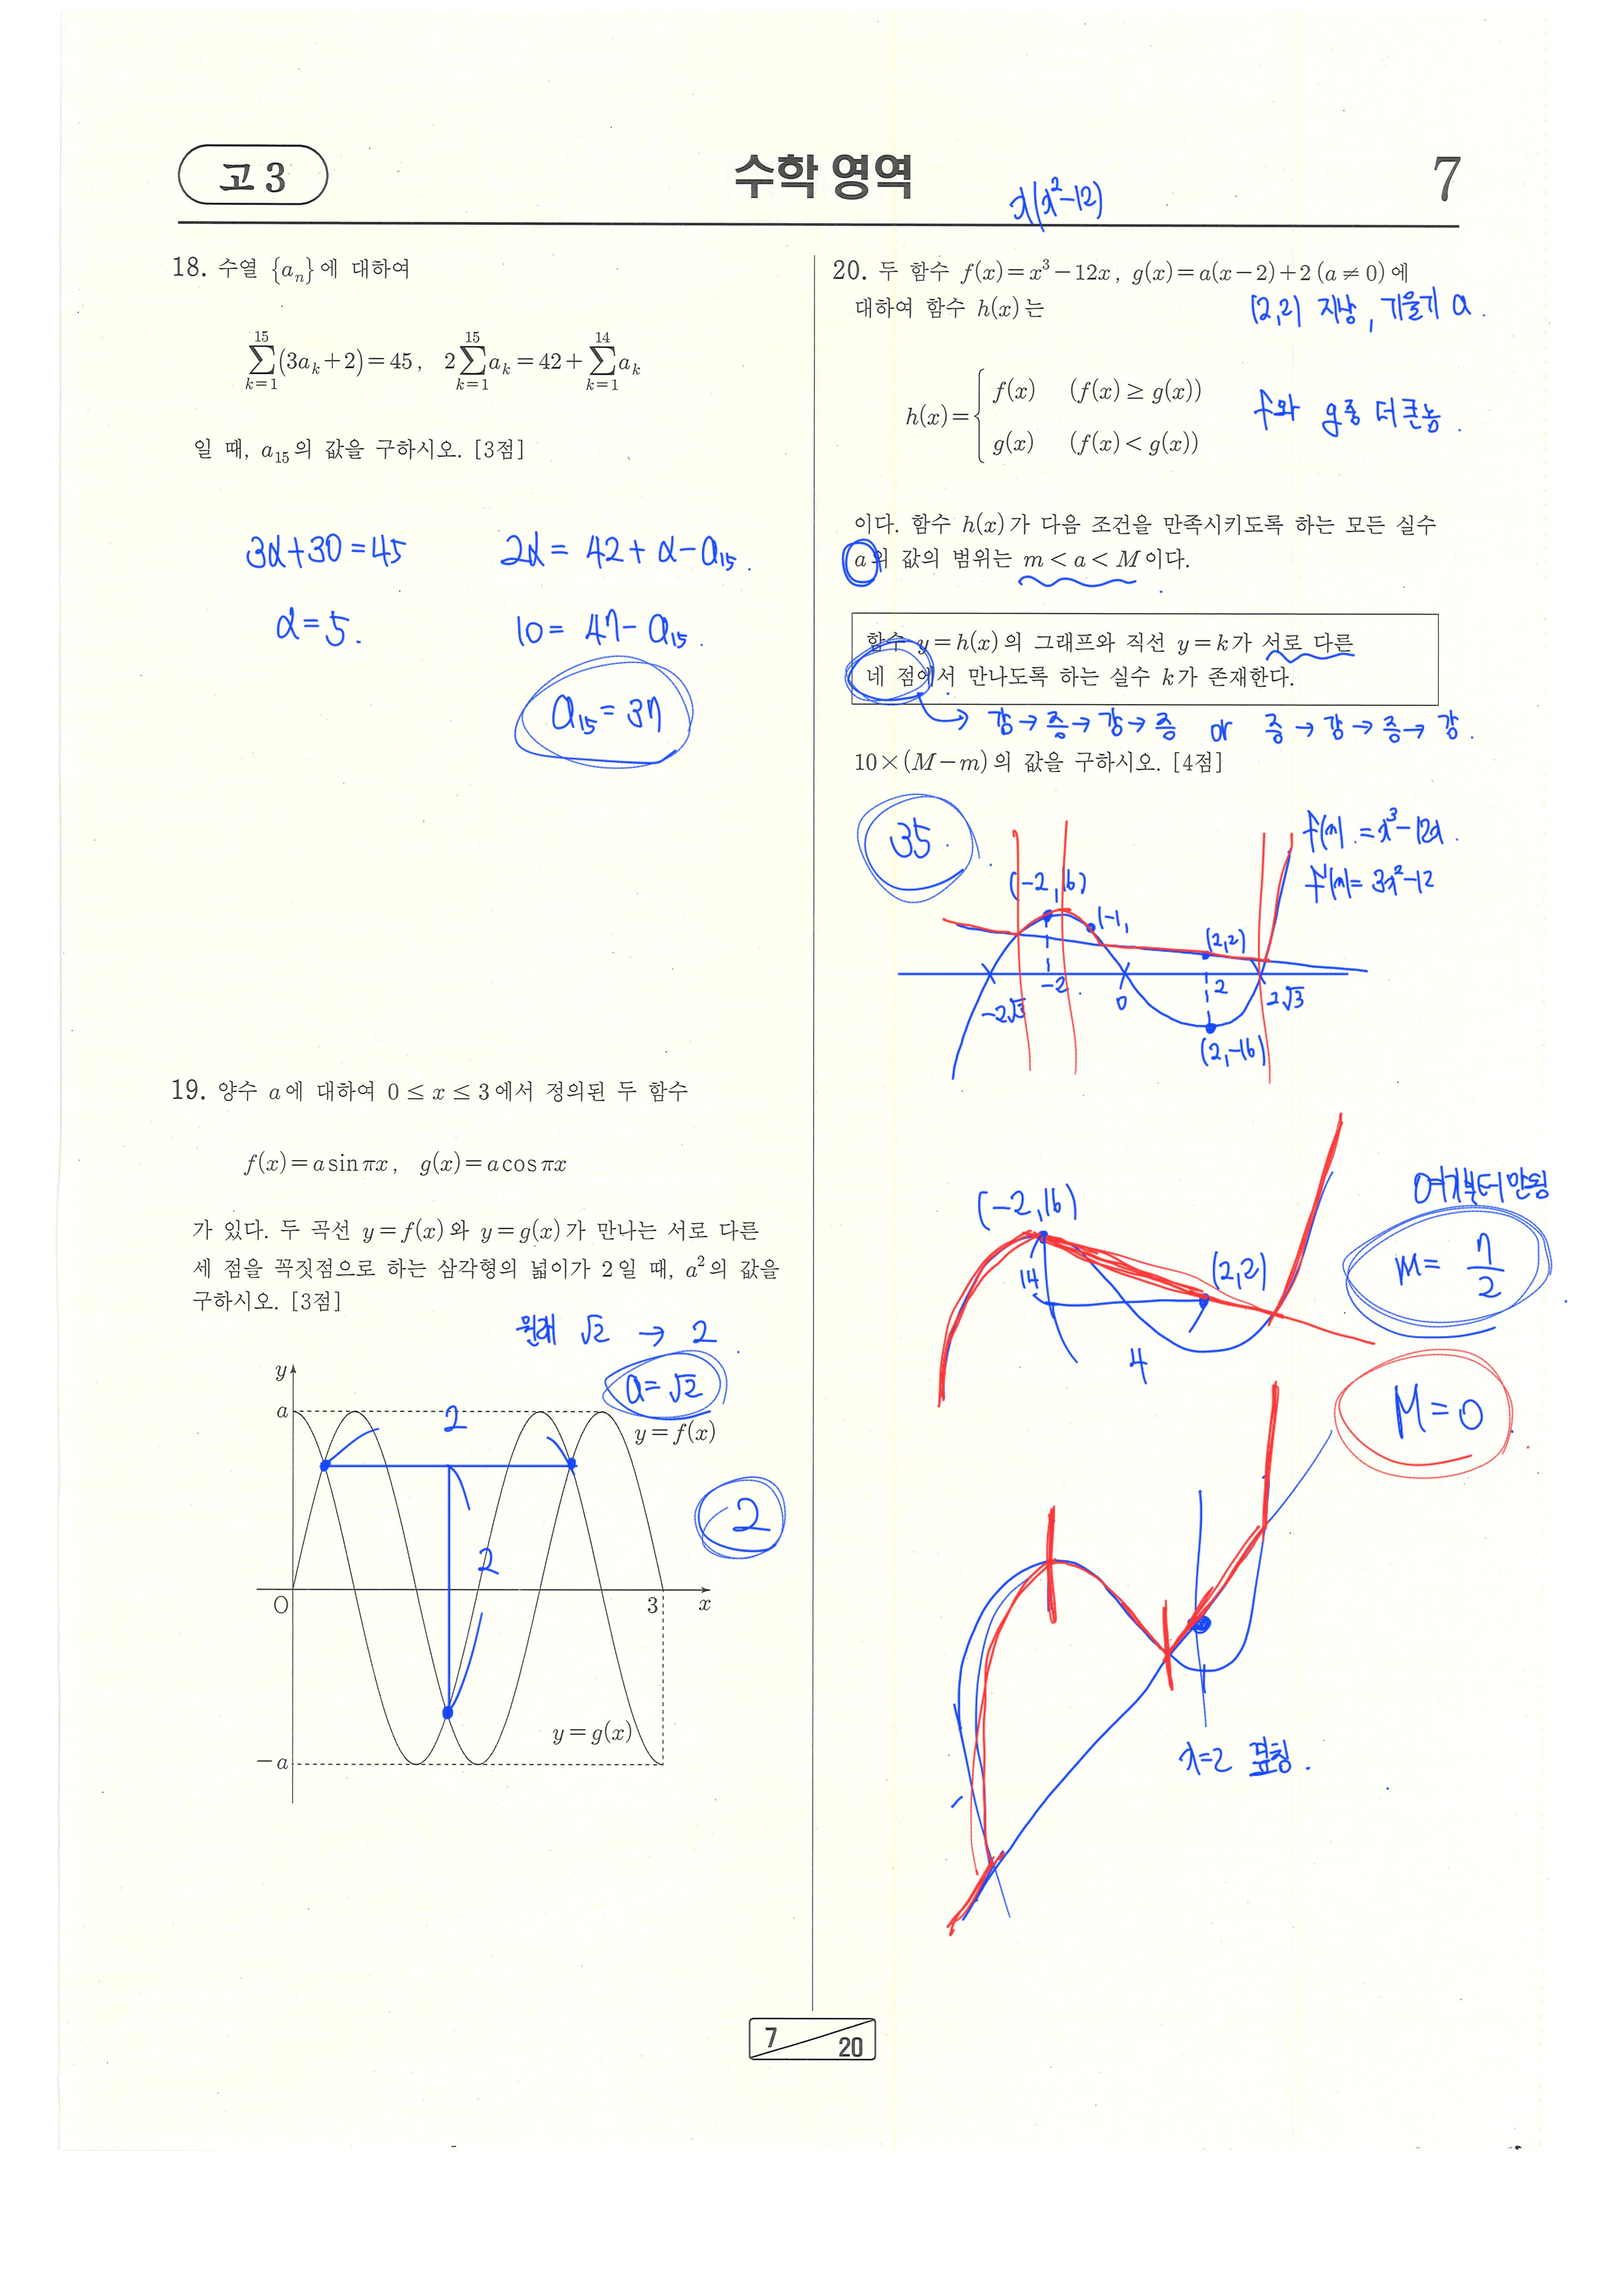 고 3
수학 영역
7
x(x²-12)
18. 수열 {aₙ}에 대하여
∑_{k=1}^{15}(3a_k+2)=45, 2∑_{k=1}^{15}a_k=42+∑_{k=1}^{14}a_k
일 때, a₁₅의 값을 구하시오. [3점]
3α+30=45
2α= 42+α-a₁₅.
α=5.
10= 47-a₁₅.
a₁₅=37
19. 양수 a에 대하여 0≤x≤3에서 정의된 두 함수
f(x)=a sin πx, g(x)=a cos πx
가 있다. 두 곡선 y=f(x)와 y=g(x)가 만나는 서로 다른
세 점을 꼭짓점으로 하는 삼각형의 넓이가 2일 때, a²의 값을
구하시오. [3점]
원래 √2 → 2
a=√2
y
a
2
y=f(x)
2
2
O
3
x
y=g(x)
-a
20. 두 함수 f(x)=x³-12x, g(x)=a(x-2)+2 (a≠0)에
대하여 함수 h(x)는
(2,2) 지남, 기울기 a.
h(x)={ f(x) (f(x)≥g(x))
g(x) (f(x)<g(x))
f와 g중 더큰놈.
이다. 함수 h(x)가 다음 조건을 만족시키도록 하는 모든 실수
a의 값의 범위는 m<a<M이다.
함수 y=h(x)의 그래프와 직선 y=k가 서로 다른
네 점에서 만나도록 하는 실수 k가 존재한다.
→ 감→증→감→증 or 증→감→증→감.
10×(M-m)의 값을 구하시오. [4점]
35.
f(x)=x³-12x.
f'(x)=3x²-12
(-2,16)
(-1,
(2,2)
-2√3
-2.
0
2
2√3
(2,-16)
(-2,16)
14
(2,2)
4
여기부터 안됨
m= 7/2
M=0
x=2
7
20